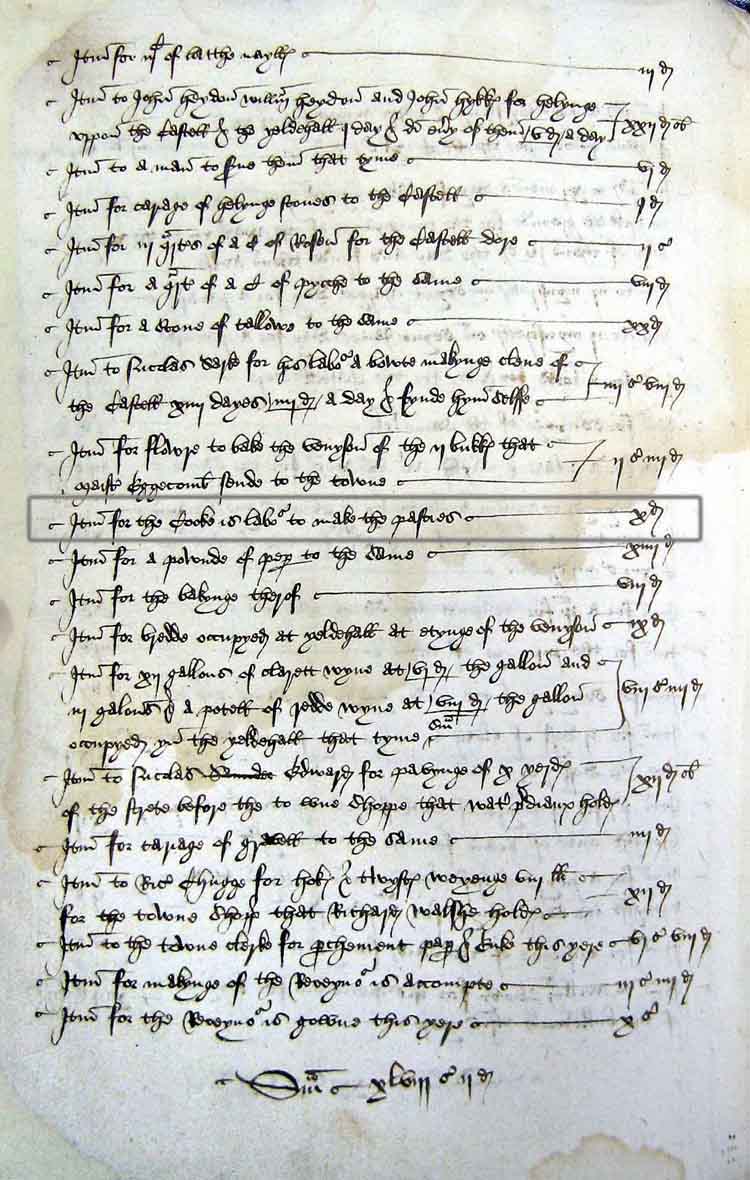 Itm for ... of latthe nayll iii d
Itm to John heydon Willm heydon and John hykk for helynge
uppon the Castell & the yeldehall i day & di evy of them v d a day xxii d ob
Itm to a man to sve them that tyme vi d
Itm for cariage of helynge stones to the Castell i d
Itm for iii qrts of a C of Rosen for the Castell dore ii s
Itm for a qrt of a C of pycche to the same viii d
Itm for a stone of tallowe to the same xx d
Itm to Nicolas for his labor a bowte makynge clene of
the Castell xiiii dayes iiii d a day & fynde hym selffe iiii s viii d
Itm for flowre to bake the venyson of the ii bukk that
Maist Eggecomb sende to the towne ii s iiii d
Itm for the Cooke is labor to make the pasties x d
Itm for a pownde of pep to the same xiiii d
Itm for the bakynge therof viii d
Itm for bredde occupyed at yeldehall at etynge of the venyson ix d
Itm for xii gallons of clarett wyne at vi d the gallon and
iii galons & a potell of redde wyne at viii d the gallon viii s iiii d
occupyed yn the yeldehall that tyme
Itm to Nicolas Edward for pavynge of x yerd
of the strete before the towne shoppe that holde xii d ob
Itm for cariage of gravell to the same iiii d
Itm to Ric Chugge for hok & twyst weyenge viii ll
for the towne shopp that Richard Walshe holde xii d
Itm to the towne clerke for pchement papr & Enke this yere vi s viii d
Itm for makynge of the Receyvor is accompte iii s iiii d
Itm for the Receyvor is gowne this yere x s
Sma xlviii s ii d